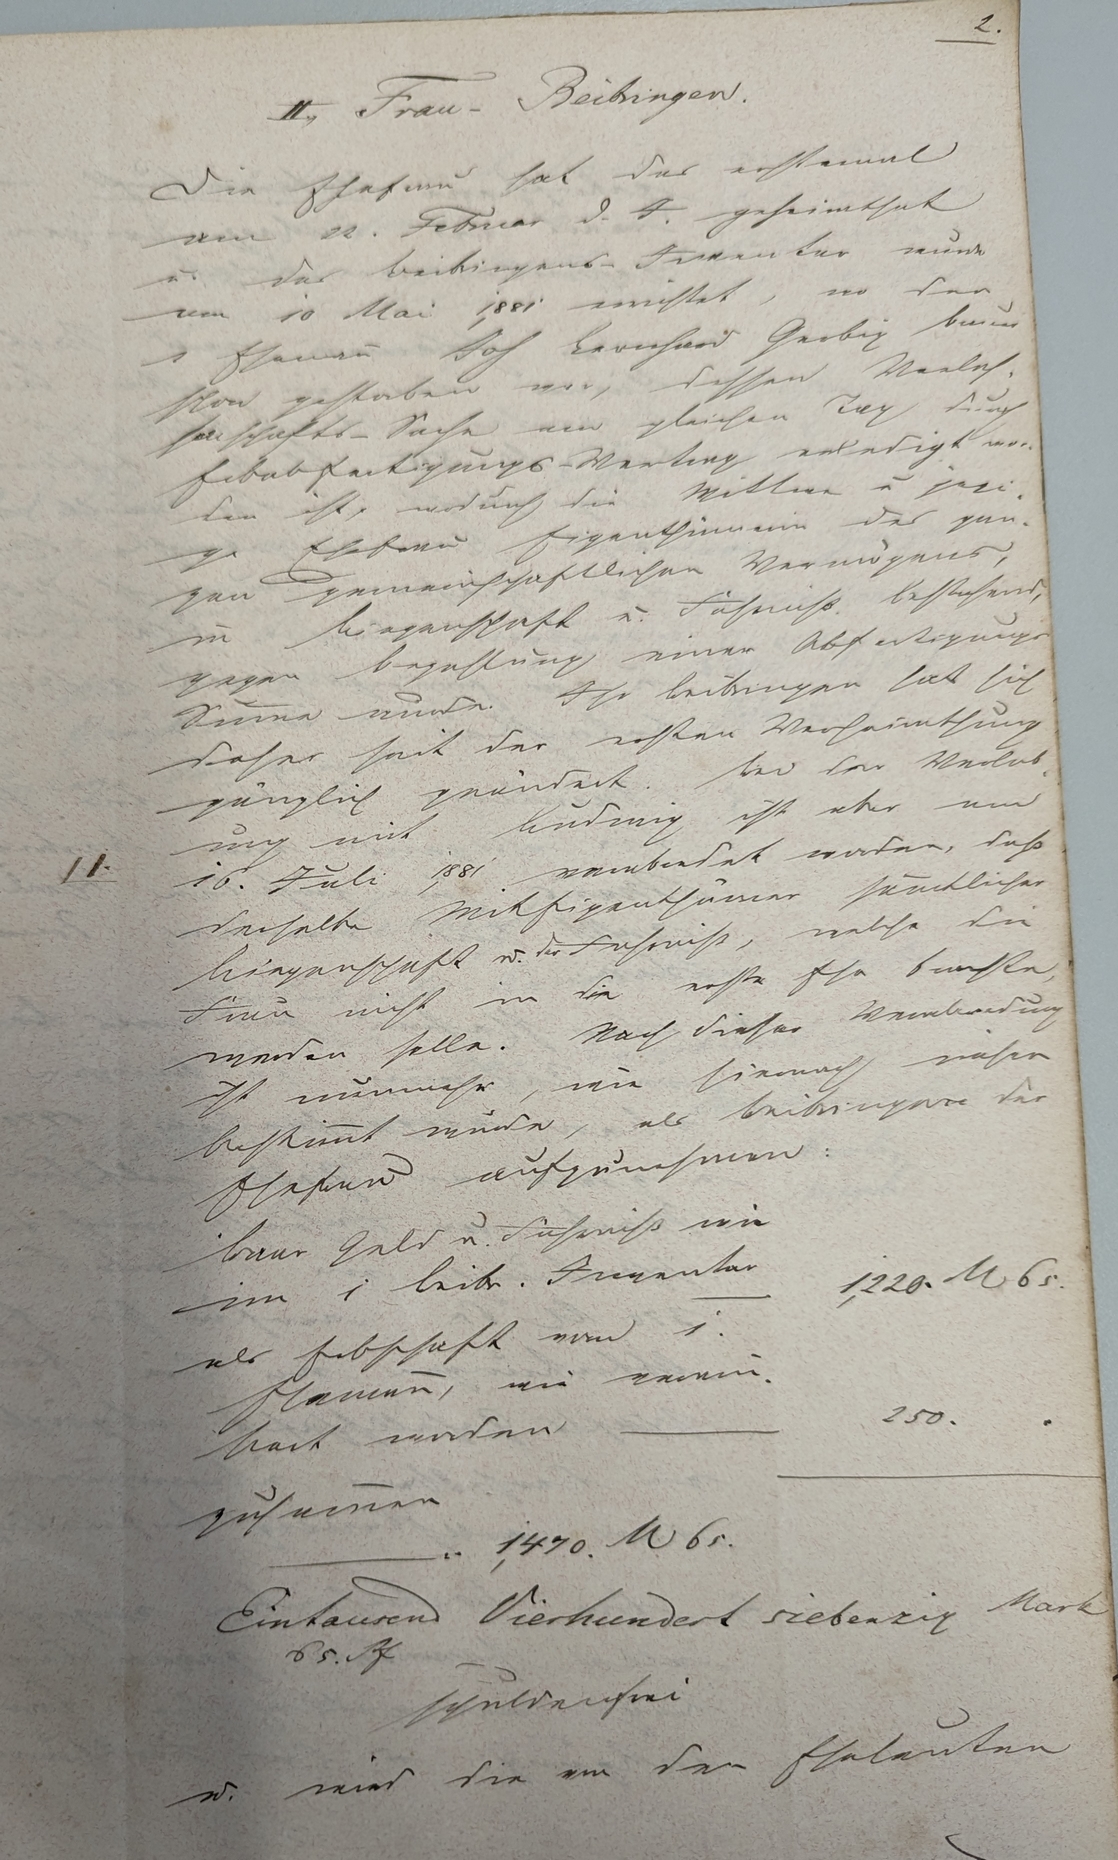 2.
II, Frau- Beibringen.
Die Ehefrau hat das erstemal
am 22. Februar d. J. geheirathet
u. das Beibringens-Inventar wurde
am 10 Mai 1,881 errichtet, wo der
1 Ehemann Joh Bernhard Gerbig bereits
schon gestorben war, dessen Verlas-
senschafts-Sache am gleichen Tag durch
Erbabfertigungs-Vertrag erledigt wor-
den ist, wodurch die Wittwe u jezi-
ge Ehefrau Eigenthümerin des gan-
zen gemeinschaftlichen Vermögens,
in Liegenschaft u. Fahrniß bestehend,
gegen Bezahlung einer Abfertigungs
Summe wurde. Ihr Beibringen hat sich
daher seit der ersten Verheirathung
gänzlich geändert. Bei der Verlob-
ung mit Ludwig ist aber am
11.
16. Juli 1,881 verabredet worden, daß
derselbe Miteigenthümer sämtlicher
Liegenschaft u. der Fahrniß, welche die
Frau nicht in die erste Ehe brachte,
werden solle. Nach dieser Verabredung
ist nunmehr, wie hienach näher
bestimmt wurde, als Beibringen der
Ehefrau aufzunehmen:
baar Geld u. Fahrniß wie
im 1 Beibr. Inventar 1,220. M 65.
als Erbschaft vom 1.
Ehemann, wie verein-
bart worden 250. .
zusammen
1,470. M 65.
Eintausend Vierhundert siebenzig Mark
65. Pf
schuldenfrei
u. wird die von den Eheleuten